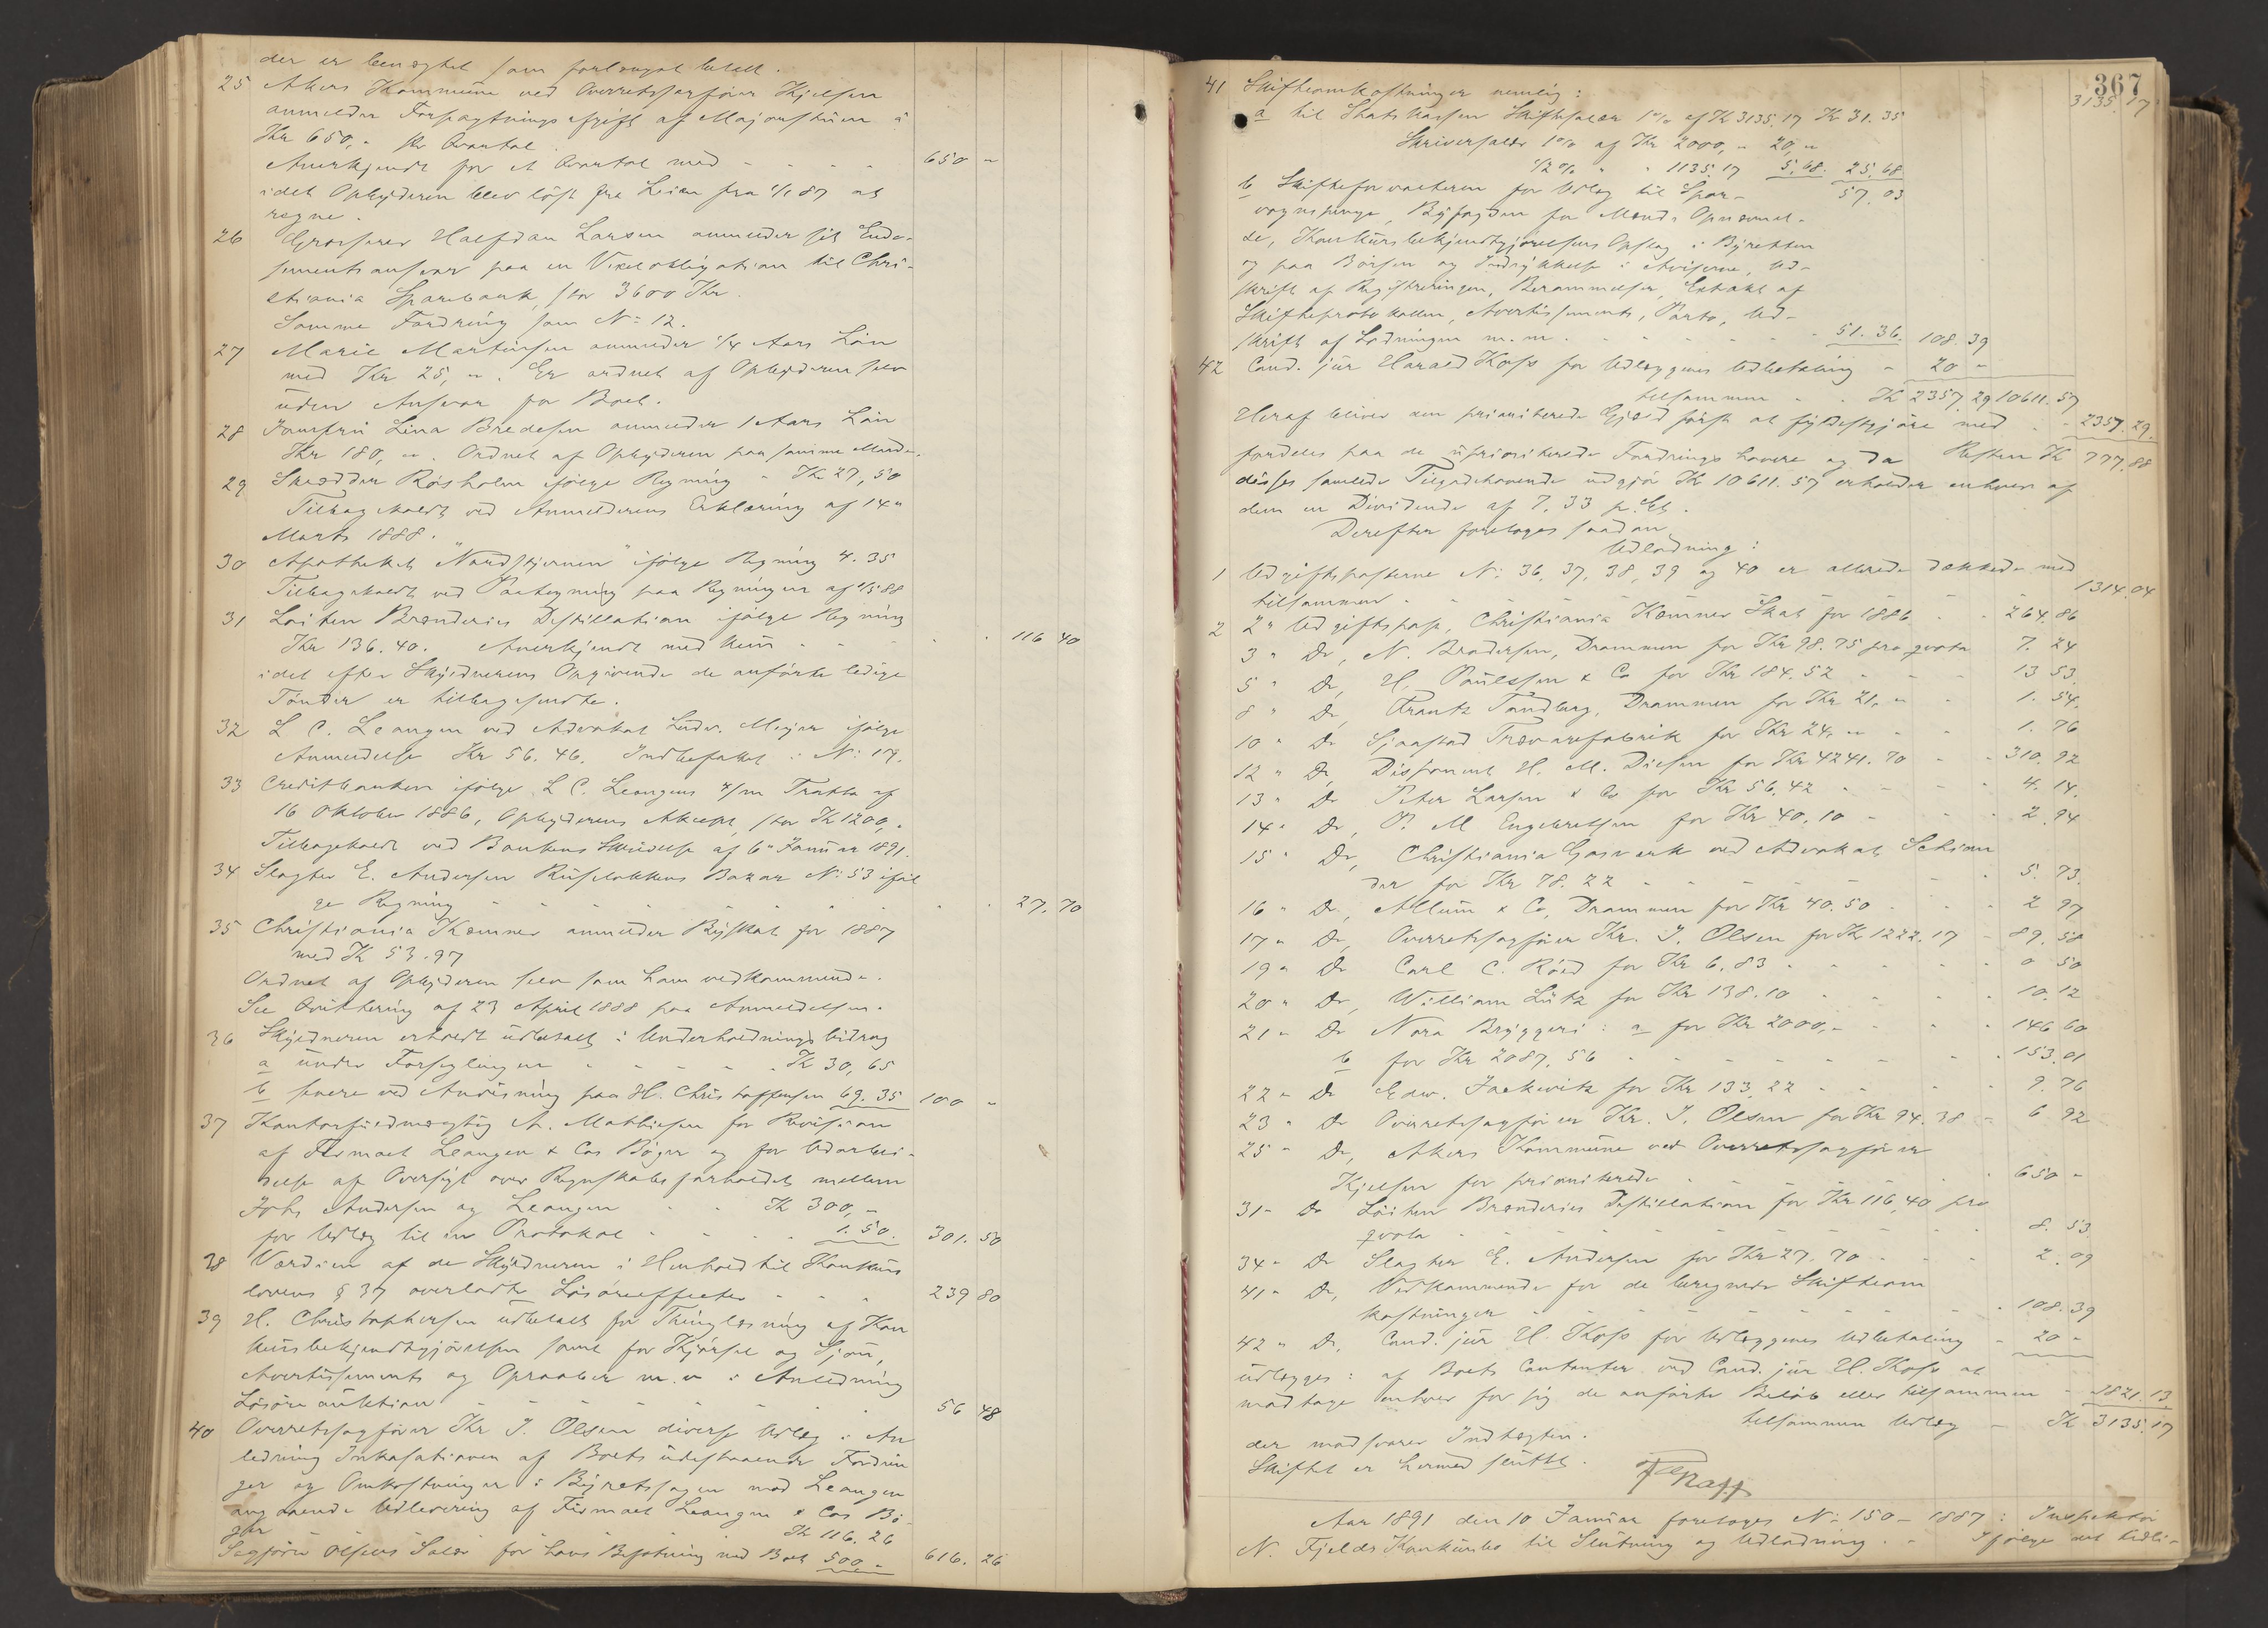 der er benægtet som forlangat betalt.
25 Akers Kommune ved Overretssagfører Kjelsen
anmelder Forpagtningsafgift af Majorstuen á
Kr 650,- pr Qvartal.
Anerkjendt for et Qvartal med - - - - 650 "
idet Opbyderen blev løst fra Leien fra 1/1 87 at
regne.
26 Grosserer Halfdan Larsen anmelder sit Endos-
sementsansvar paa en Vexelobligation til Chri-
stiania Sparebank, stor 3600 Kr.
Samme Fordring som No: 12.
27 Marie Martinsen anmelder 1/4 Aars Løn
med Kr 25, ". Er ordnet af Opbyderen selv
uden Ansvar for Boet.
28 Jomfru Lina Bredesen anmelder 1 Aars Løn
Kr 180, ". Ordnet af Opbyderen paa samme Maade.
29 Skrædder Røisholm ifølge Regning - Kr 27,50
Tilbagekaldt ved Anmelderens Erklæring af 14"
Marts 1888.
30 Apotheket "Nordstjernen" ifølge Regning 4.35
Tilbagekaldt ved Paategning paa Regningen af 1/5 88
31 Løiten Brænderies Destillation ifølge Regning
Kr 136.40. Anerkjendt med kun - - - - 116 40
idet efter Skyldnerens Opgivende de anførte ledige
Tønder er tilbagesendte.
32 L. C. Leangen ved Advokat Ludv. Meyer ifølge
Anmeldelse Kr 56.46. Indbefattet i No: 19.
33 Creditbanken ifølge L C. Leangens 4/m Tratta af
16 Oktober 1886, Opbyderens Akcept, stor Kr 1200,-
Tilbagekaldt ved Bankens Skrivelse af 6" Januar 1891.
34 Slagter E. Andersen Ruseløkkens Bazar No: 53 iføl
ge Regning - - - - - - 27.70
35 Christiania Kæmner anmelder Byskat for 1887
med Kr 53.97
Ordnet af Opbyderen selv som ham vedkommende.
Se Qvittering af 23 April 1888 paa Anmeldelsen.
36 Skyldneren erholdt udbetalt i Underholdningsbidrag
a under Forseglingen - - - - Kr 30,65
b senere ved Anvisning paa H. Christoffersen 69.35 100 "
37 Kontorfuldmægtig A. Mathiesen for Revision
af Firmaet Leangen & Cos Bøger og for Udarbei-
delse af Oversigt over Regnskabsforholdet mellem
Johs Andersen og Leangen - - Kr 300,-
for Udlæg til en Protokol - - - - 1.50. 301.50
38 Værdien af de Skyldneren i Henhold til Konkurs
lovens § 37 overladte Løsøreeffecter - - - 239 80
39 H. Christophersen udbetalt for Thinglæsning af Kon
kursbekjendtgjørelsen samt for Kjørsel og Sjau,
Avertissements og Opraaber m. v. i Anledning
Løsøreauktion - - - - - - 56 48
40 Overretssagfører Kr J. Olsen diverse Udlæg i An
ledning Inkassationen af Boets udestaaende Fordrin
ger og Omkostninger i Byretssagen mod Leangen
angaaende Udlevering af Firmaet Leangen & Cos Bø-
ger Kr 116.26
Sagfører Olsens Salær for hans Besørgning ved Boet 500 - 616.26
367
3135.17
41 Skifteomkostninger nemlig:
a til Statskassen Skiftesalær 1% af Kr 3135.17 Kr 31.35
Skriversalær 1% af Kr 2000,- 20,"
1/2% " " 1135.17 5.68. 25.68
57.03
b Skifteforvalteren for Udlæg til Spor-
vognspenge, Byfogden for Mænds Opnævnel-
se, Konkursbekjendtgjørelsens Opslag i Byretten
og paa Børsen og Indrykkelse i Aviserne, Ud-
skrift af Registreringen, Berammelser, Extrakt af
Skifteprotokollen, Avertissements, Porto, Ud-
skrift af Lodningen m.m. - - - - - 51.36. 108.39
42 Cand. jur Harald Koss for Udlæggenes Udbetaling - 20 -
tilsammen - - Kr 2357.29 10611.57
Heraf bliver den prioriterede Gjæld først at fyldestgjøre med - - 2357.29.
Resten Kr 777.88
fordeles paa de uprioriterede Fordringshavere og da
disses samlede Tilgodehavende udgjør Kr 10611.57 erholder enhver af
dem en Dividende af 7.33 p. Ct.
Derefter foretoges saadan
Udlodning:
1 Udgiftsposterne No: 36, 37, 38, 39 og 40 er allerede dækkede med
tilsammen - - - - - - 1314.04
2 2" Udgiftspost, Christiania Kæmner Skat for 1886 - - 264.86
3 " Do, N. Brodersen, Drammen for Kr 98.75 pro qvota 7.24
5 " Do, H. Paulssen & Co for Kr 184.52 - - - 13 53
8 " Do, Frantz Tandberg, Drammen for Kr 21,- - - 1.54.
10 " Do Sjaastad Trævarefabrik for Kr 24,- - - 1.76
12 " Do, Disponent H. M. Diesen for Kr 4241.70 - - 310.92
13 " Do Peter Larsen & Co for Kr 56.42 - - - 4.14.
14 " Do, P. M Engebretsen for Kr 40.10 - - - 2.94
15 " Do, Christiania Gasverk ved Advokat Schian
der for Kr 78.22 - - - - - 5.73.
16 " Do, Allum & Co, Drammen for Kr 40.50 - - - 2 97
17 " Do, Overretssagfører Kr. J. Olsen for Kr 1222.17 - 89.58
19 " Do Carl C. Röed for Kr 6.83 - - - - 0 50
20 " Do, William Lütz for Kr 138.10 - - - 10.12
21 " Do Nora Bryggeri: a for Kr 2000,- - - - 146 60
b for Kr 2087.56 - - - - - - 153.01
22 " Do Edw. Jackwitz for Kr 133,22 - - - 9.76
23 " Do Overretssagfører Kr. J. Olsen for Kr 94.38 - 6 92
25 " Do, Akers Kommune ved Overretssagfører
Kjelsen for prioriterede - - - - 650 -
31 " Do Løiten Brænderies Destillation for Kr 116,40 pro
qvota - - - - - - 8.53
34 " Do Slagter E. Andersen for Kr 27.70 - - - 2.09
41 " Do, Vedkommende for de beregnede Skifteom
kostninger - - - - - - 108.39
42 " Do, Cand. jur H. Koss for Udlæggenes Udbetaling - 20 -
udlægges: af Boets Contanter ved Cand. jur H. Koss at
modtage enhver for sig de anførte Beløb eller tilsammen - 1821.13
tilsammen Udlæg - Kr 3135.17
der modsvarer Indtægten.
Skiftet er hermed sluttet.
Aar 1891 den 10 Januar foretoges No: 150 - 1887: Inspektør
N. Fjelds Konkursbo til Slutning og Udlodning. - Ifølge det tidli-